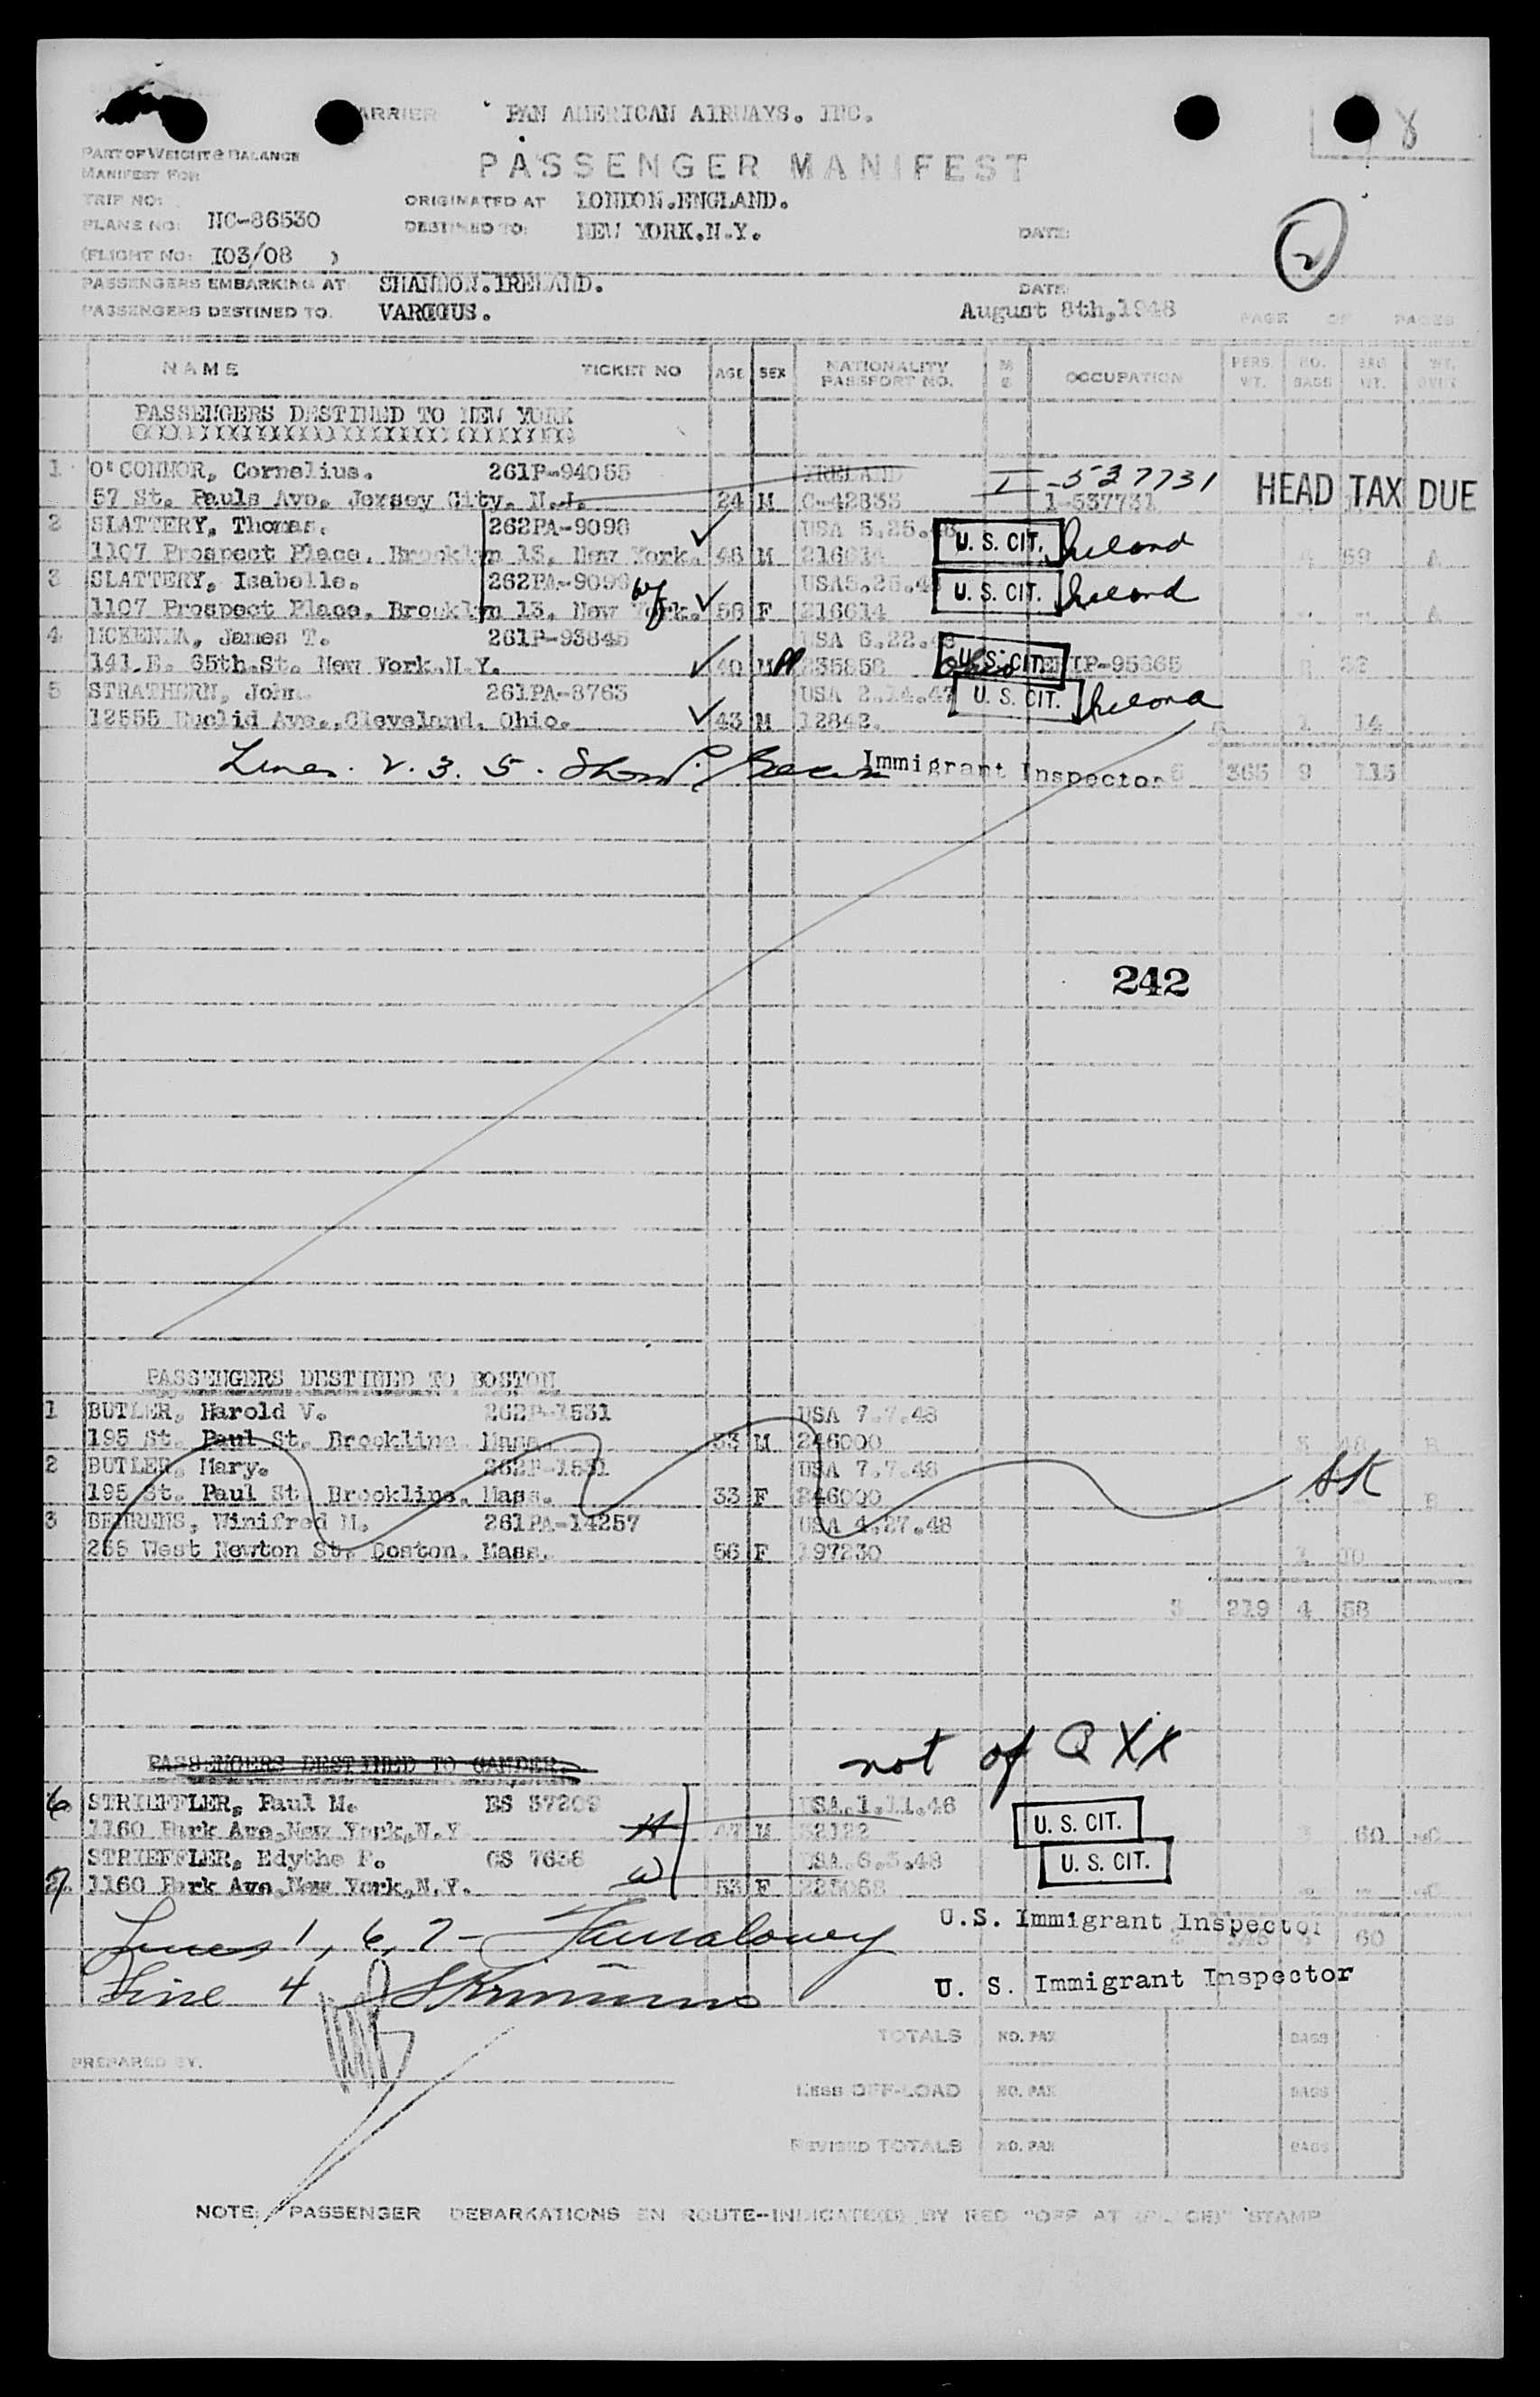 ARRIER PAN AMERICAN AIRWAYS. INC. 8
PART OF WEIGHT & BALANCE
MANIFEST FOR
PASSENGER MANIFEST
TRIP NO: ORIGINATED AT LONDON.ENGLAND.
PLANE NO: NC-86530 DESTINED TO: NEW YORK.N.Y. DATE: 2
(FLIGHT NO: I03/08 )
PASSENGERS EMBARKING AT SHANNON.IRELAND. DATE
PASSENGERS DESTINED TO. VARIOUS. August 8th,1948 PAGE OF PAGES
NAME TICKET NO AGE SEX NATIONALITY PASSPORT NO. M S OCCUPATION PERS. WT. NO. BAGS BAG WT. WT. OVER
PASSENGERS DESTINED TO NEW YORK
1 O'CONNOR, Cornelius. 261P-94055 IRELAND I-537731 HEAD TAX DUE
57 St. Pauls Ave. Jersey City. N.J. 24 M C-42835 1-537731
2 SLATTERY, Thomas. 262PA-9098 USA 5.25.48 U. S. CIT. Ireland
1107 Prospect Place. Brooklyn 13. New York. 48 M 216614 69 A
3 SLATTERY, Isabelle. 262PA-9099 wf USA5.25.48 U. S. CIT. Ireland
1107 Prospect Place. Brooklyn 13. New York. 58 F 216614 A
4 MCKENNA, James T. 261P-93845 USA 6.22.48 U. S. CIT.
141.E. 65th.St. New York.N.Y. 40 M 235858 Ohio IP-95665 32
5 STRATHERN, John. 261PA-8763 USA 2.14.47 U. S. CIT. Ireland
12555 Euclid Ave.,Cleveland. Ohio. 43 M 12842. 1 14
Lines. 2. 3. 5. Immigrant Inspector 5 365 9 115
242
PASSENGERS DESTINED TO BOSTON
1 BUTLER, Harold V. 262P-1531 USA 7.7.48
195 St. Paul St. Brookline. Mass. 33 M 246000
2 BUTLER, Mary. 262P-1531 USA 7.7.48
195 St. Paul St. Brookline. Mass. 33 F 246000
3 BEHRENS, Winifred M. 261PA-14257 USA 4.27.48
255 West Newton St. Boston. Mass. 56 F 197230 1 10
3 219 4 58
not of QXX
PASSENGERS DESTINED TO GANDER.
6 STRIEFFLER, Paul M. BS 37209 USA.1.11.46 U. S. CIT.
1160 Park Ave.New York.N.Y H 47 M 32122 60
STRIEFFLER, Edythe F. GS 7638 USA.6.3.48 U. S. CIT.
7 1160 Park Ave.New York.N.Y. W 53 F 225068
Lines 1, 6, 7- U.S. Immigrant Inspector 60
Line 4 U. S. Immigrant Inspector
TOTALS NO. PAX BAGS
PREPARED BY.
LESS OFF-LOAD NO. PAX BAGS
REVISED TOTALS NO. PAX BAGS
NOTE: PASSENGER DEBARKATIONS EN ROUTE--INDICATE(D) BY RED "OFF AT (PLACE)" STAMP